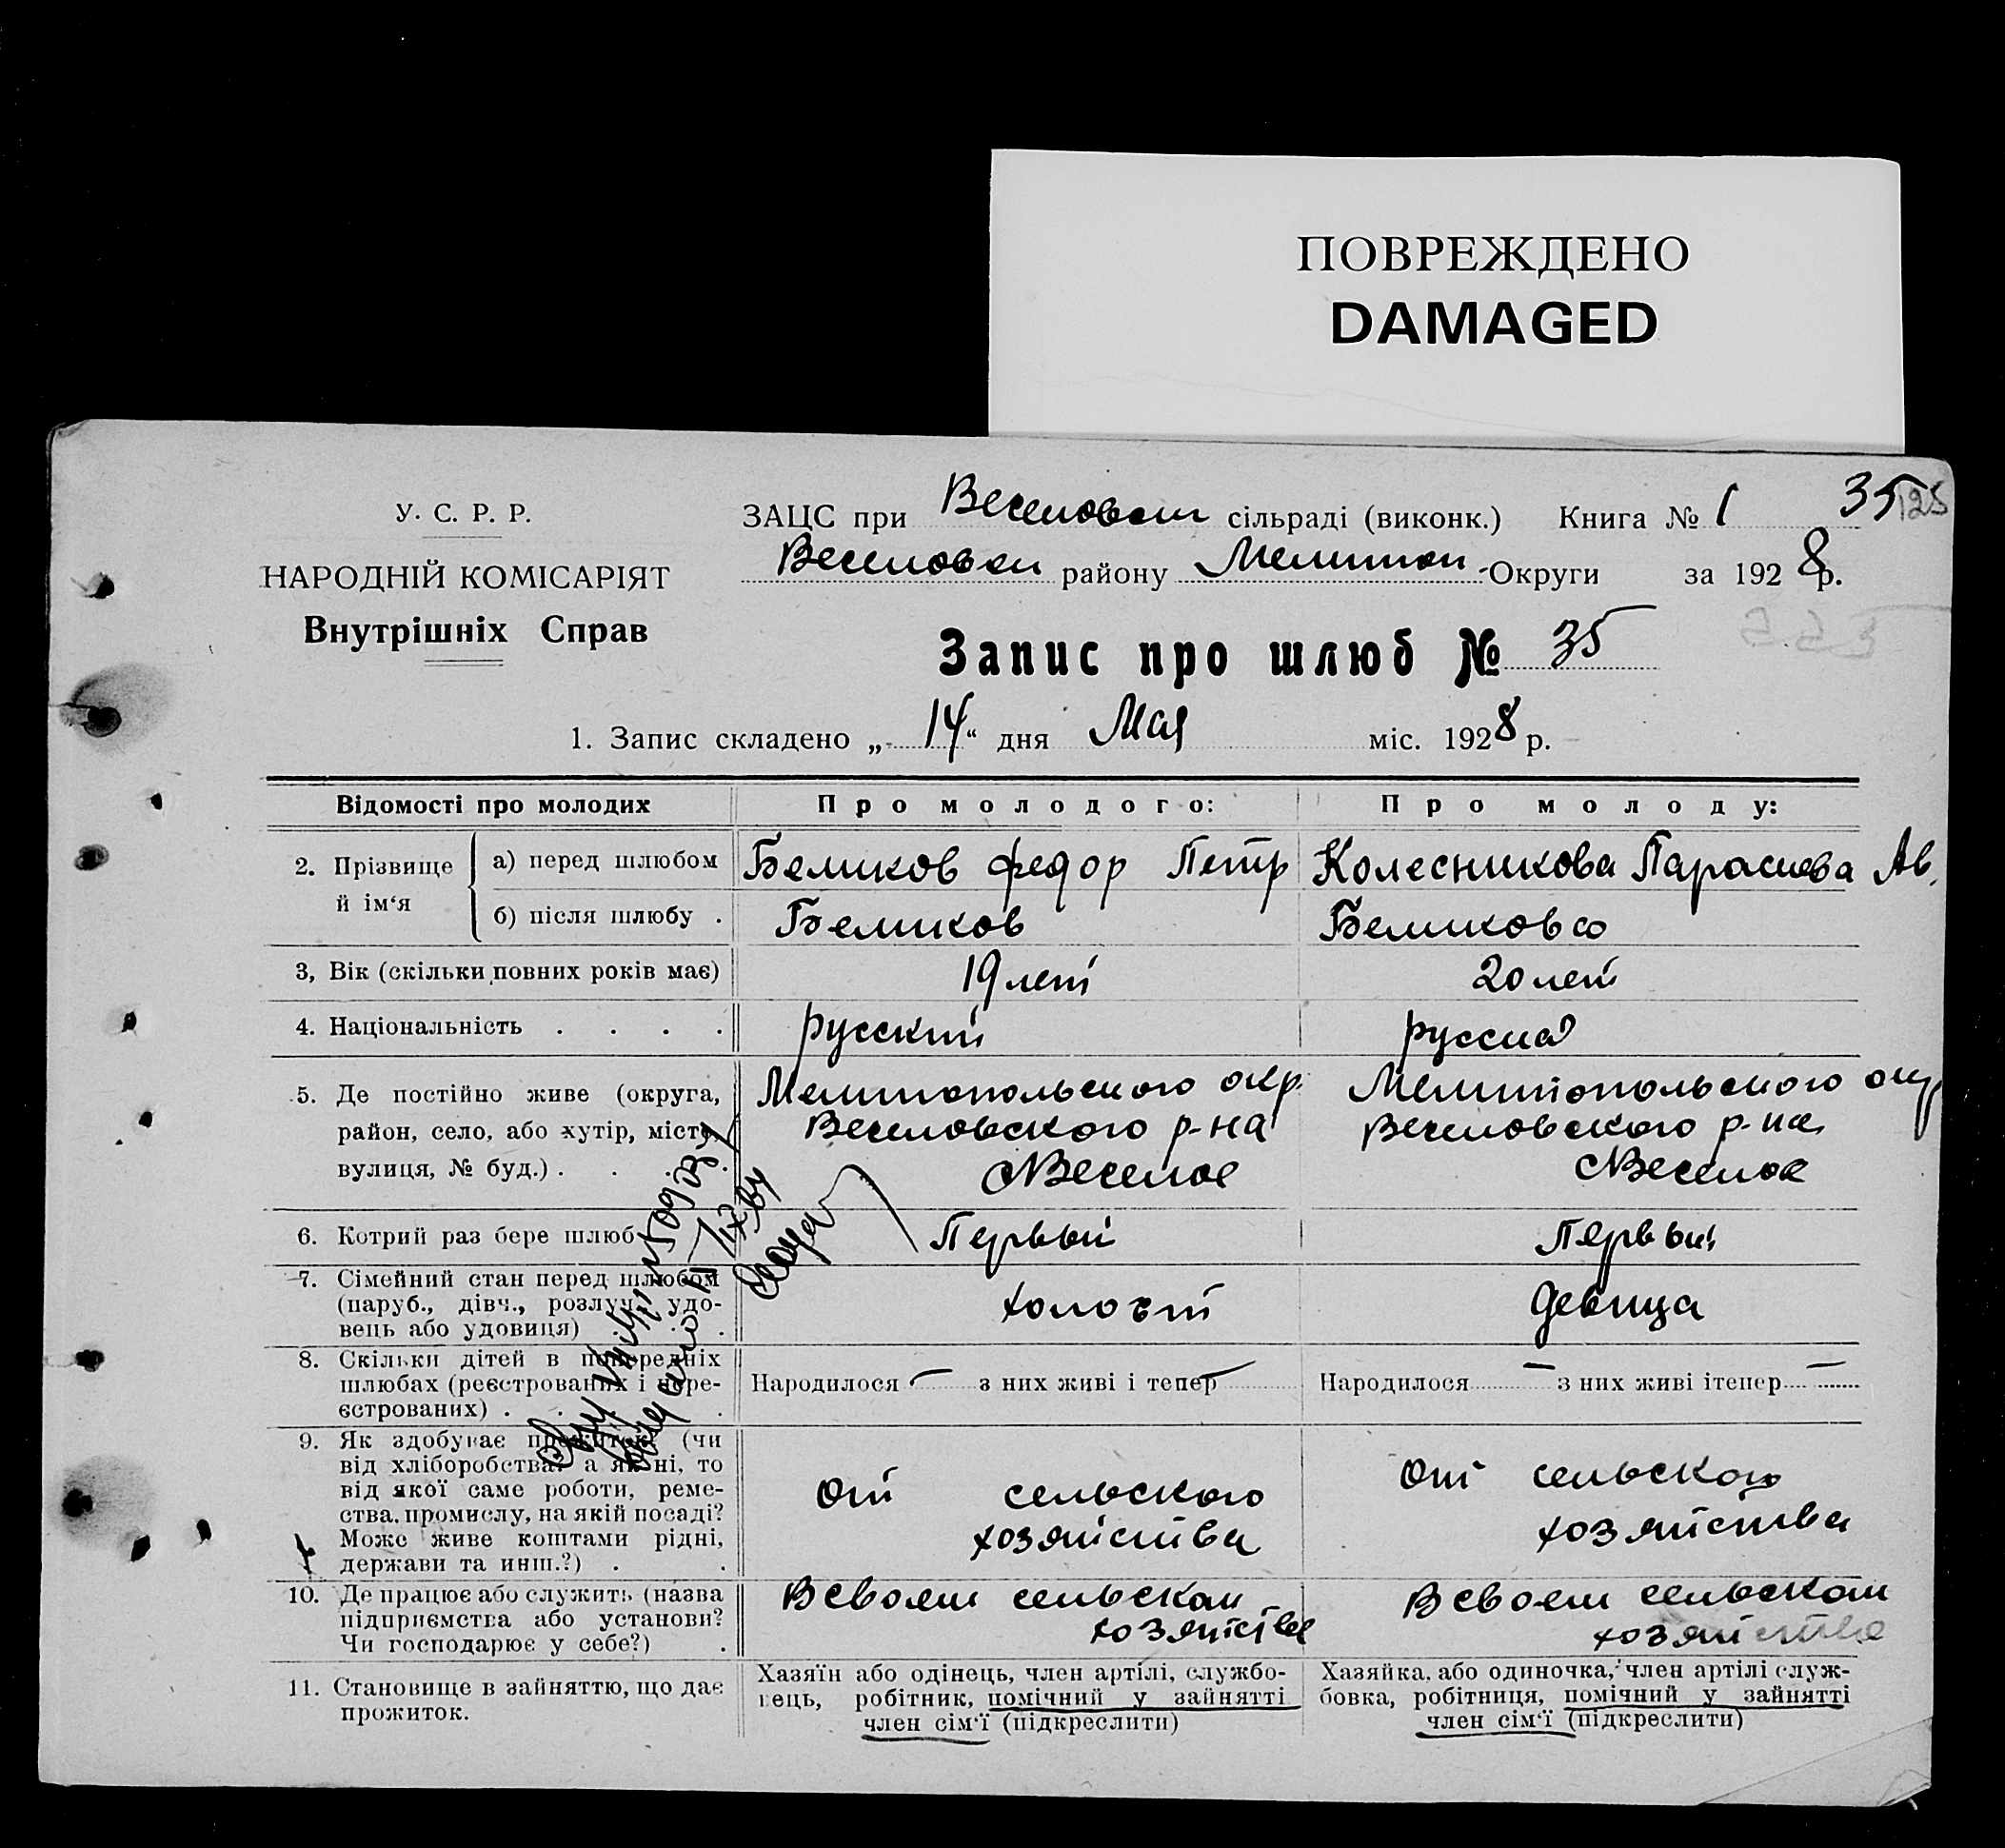 ПОВРЕЖДЕНО
DAMAGED
У. С. Р. Р.
НАРОДНІЙ КОМІСАРІЯТ
Внутрішніх Справ
ЗАЦС при Веселовском сільраді (виконк.) Книга № 1 35 125
Веселовск району Мелитоп. Округи за 1928 р.
Запис про шлюб № 35
1. Запис складено „14“ дня Мая міс. 1928 р.
Відомості про молодих
Про молодого:
Про молоду:
2. Прізвище й ім‘я
а) перед шлюбом
Беликов Федор Петр
Колесникова Парасиева Ав.
б) після шлюбу .
Беликов
Беликова
3, Вік (скільки повних років має)
19 лет
20 лет
4. Національність . . . .
русский
русская
5. Де постійно живе (округа,
район, село, або хутір, місто,
вулиця, № буд.) . . .
Мелитопольского окр.
Веселовского р-на
с Веселое
Мелитопольского окр
Веселовского р-на
с Веселое
6. Котрий раз бере шлюб
Первый
Первый
7. Сімейний стан перед шлюбом
(паруб., дівч., розлуч., удо-
вець або удовиця) . .
холост
девица
8. Скільки дітей в попередніх
шлюбах (реєстрованих і нере-
єстрованих) . . .
Народилося — з них живі і тепер —
Народилося — з них живі ітепер —
9. Як здобуває прожиток (чи
від хліборобства? а як ні, то
від якої саме роботи, реме-
ства, промислу, на якій посаді?
Може живе коштами рідні,
держави та инш.?) . .
От сельского
хозяйства
От сельского
хозяйства
10. Де працює або служить (назва
підприємства або установи?
Чи господарює у себе?) .
В своем сельском
хозяйстве
В своем сельском
хозяйстве
11. Становище в зайняттю, що дає
прожиток.
Хазяїн або одінець, член артілі, службо-
вець, робітник, помічний у зайнятті
член сім‘ї (підкреслити)
Хазяйка, або одиночка, член артілі служ-
бовка, робітниця, помічний у зайнятті
член сім‘ї (підкреслити)